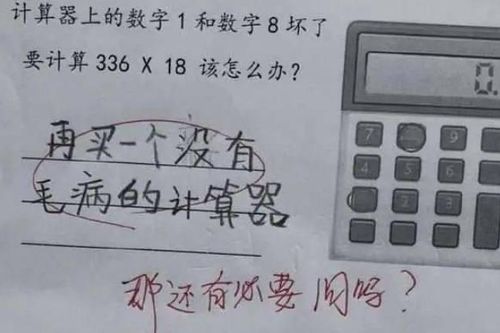 计算器上的数字1和数字8坏了
要计算336 X 18 该怎么办?
再买一个没有
毛病的计算器
那还有必要问吗?
0.
7
9
4
5
6
2